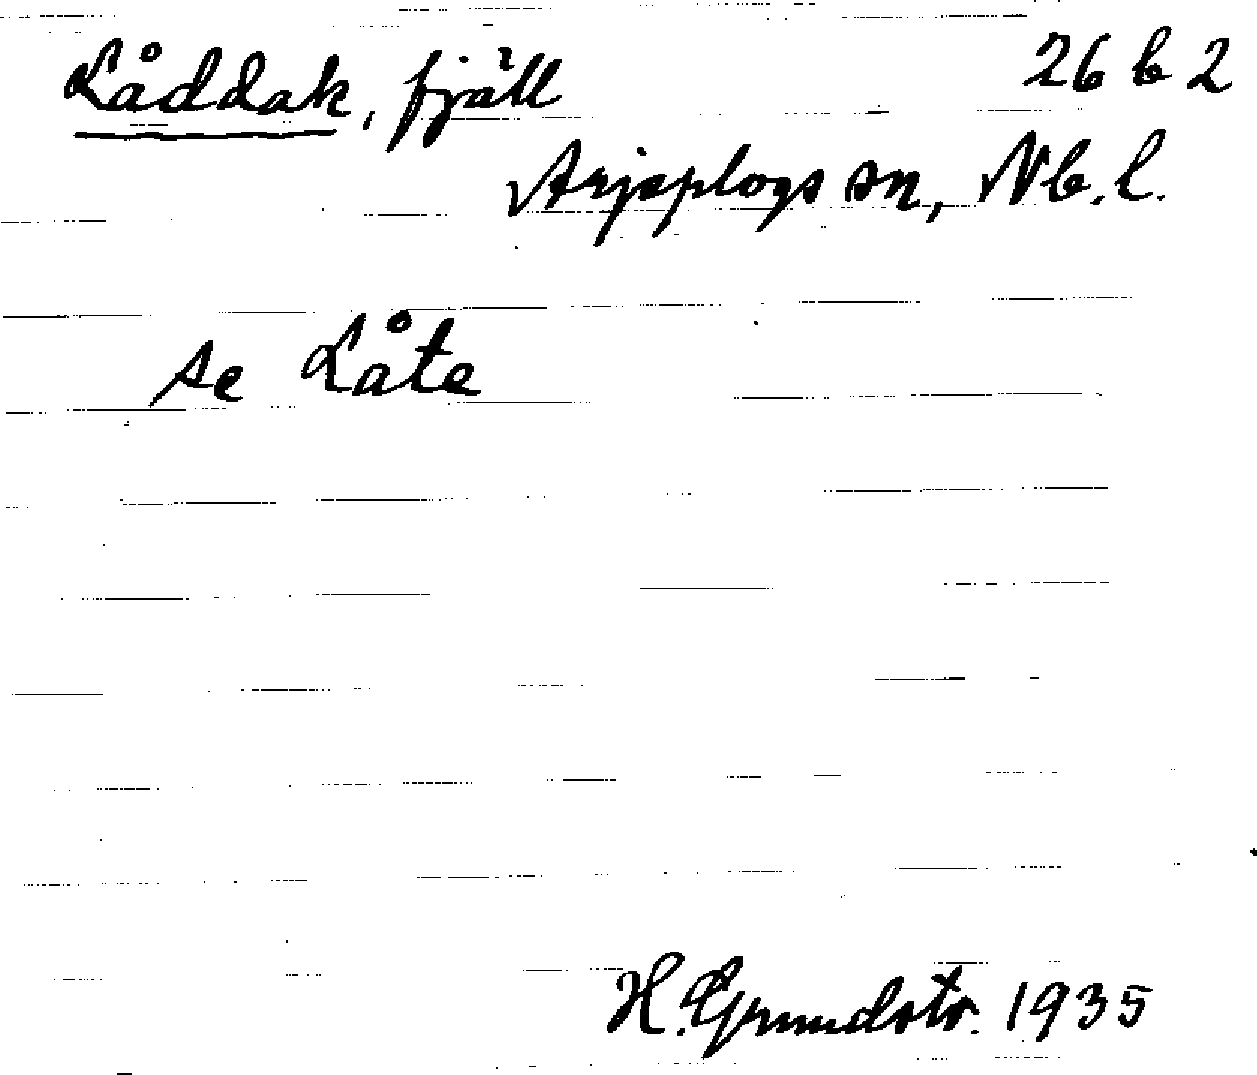 Låddak, fjäll 26 b 2
Arjeplogs sn, Nb. l.
se Låte
H. Grundstr. 1935